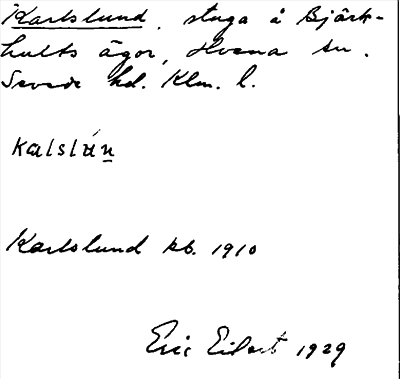 Karlslund, stuga å Björk-
hults ägor, Hvena sn.
Sevede hd. Klm. l.
Karlslund kb. 1910
Eric Eilert 1929